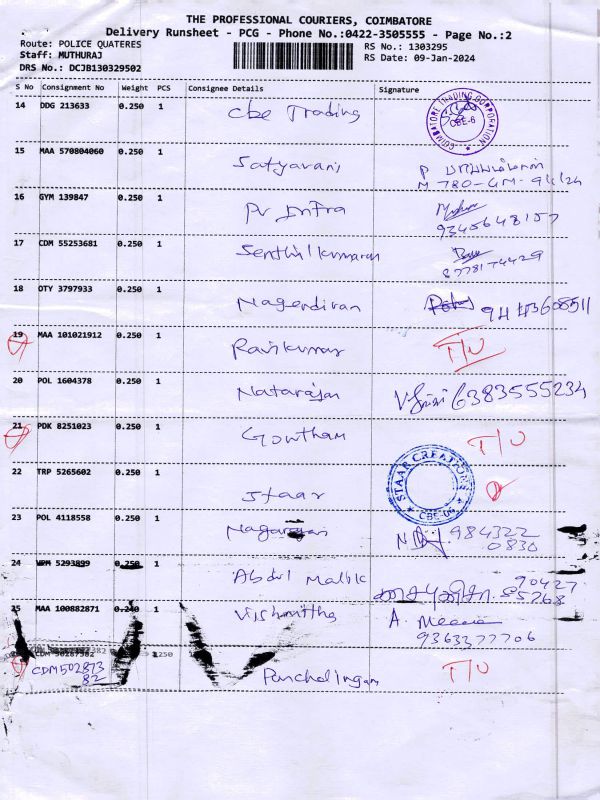 THE PROFESSIONAL COURIERS, COIMBATORE
Delivery Runsheet - PCG - Phone No.:0422-3505555 - Page No.:2
Route: POLICE QUATERES
RS No.: 1303295
Staff: MUTHURAJ
RS Date: 09-Jan-2024
DRS No.: DCJB130329502
S No Consignment No Weight PCS Consignee Details Signature
14 DDG 213633 0.250 1 Cbe Trading
COIMBATORE TRADING CORPORATION CBE-6
15 MAA 570804060 0.250 1 Satyavani P
M 780-GM-
16 GYM 139847 0.250 1 Pv Infra
9345648157
17 CDM 55253681 0.250 1 Senthilkumaran
8778174429
18 OTY 3797933 0.250 1 Nagendiran
19 MAA 101021912 0.250 1 Ravikumar T/U
20 POL 1604378 0.250 1 Natarajan 6383555234
21 PDK 8251023 0.250 1 Gowtham T/U
22 TRP 5265602 0.250 1 Staar
STAAR CREATIONS CBE-06
23 POL 4118558 0.250 1 Nagarajan 984322
0830
24 VPM 5293899 0.250 1 Abdul Mallik 90427
25 MAA 100882871 0.240 1 A.
9363377706
CDM 50287382 1
CDM502873
82
Panchalingam T/U